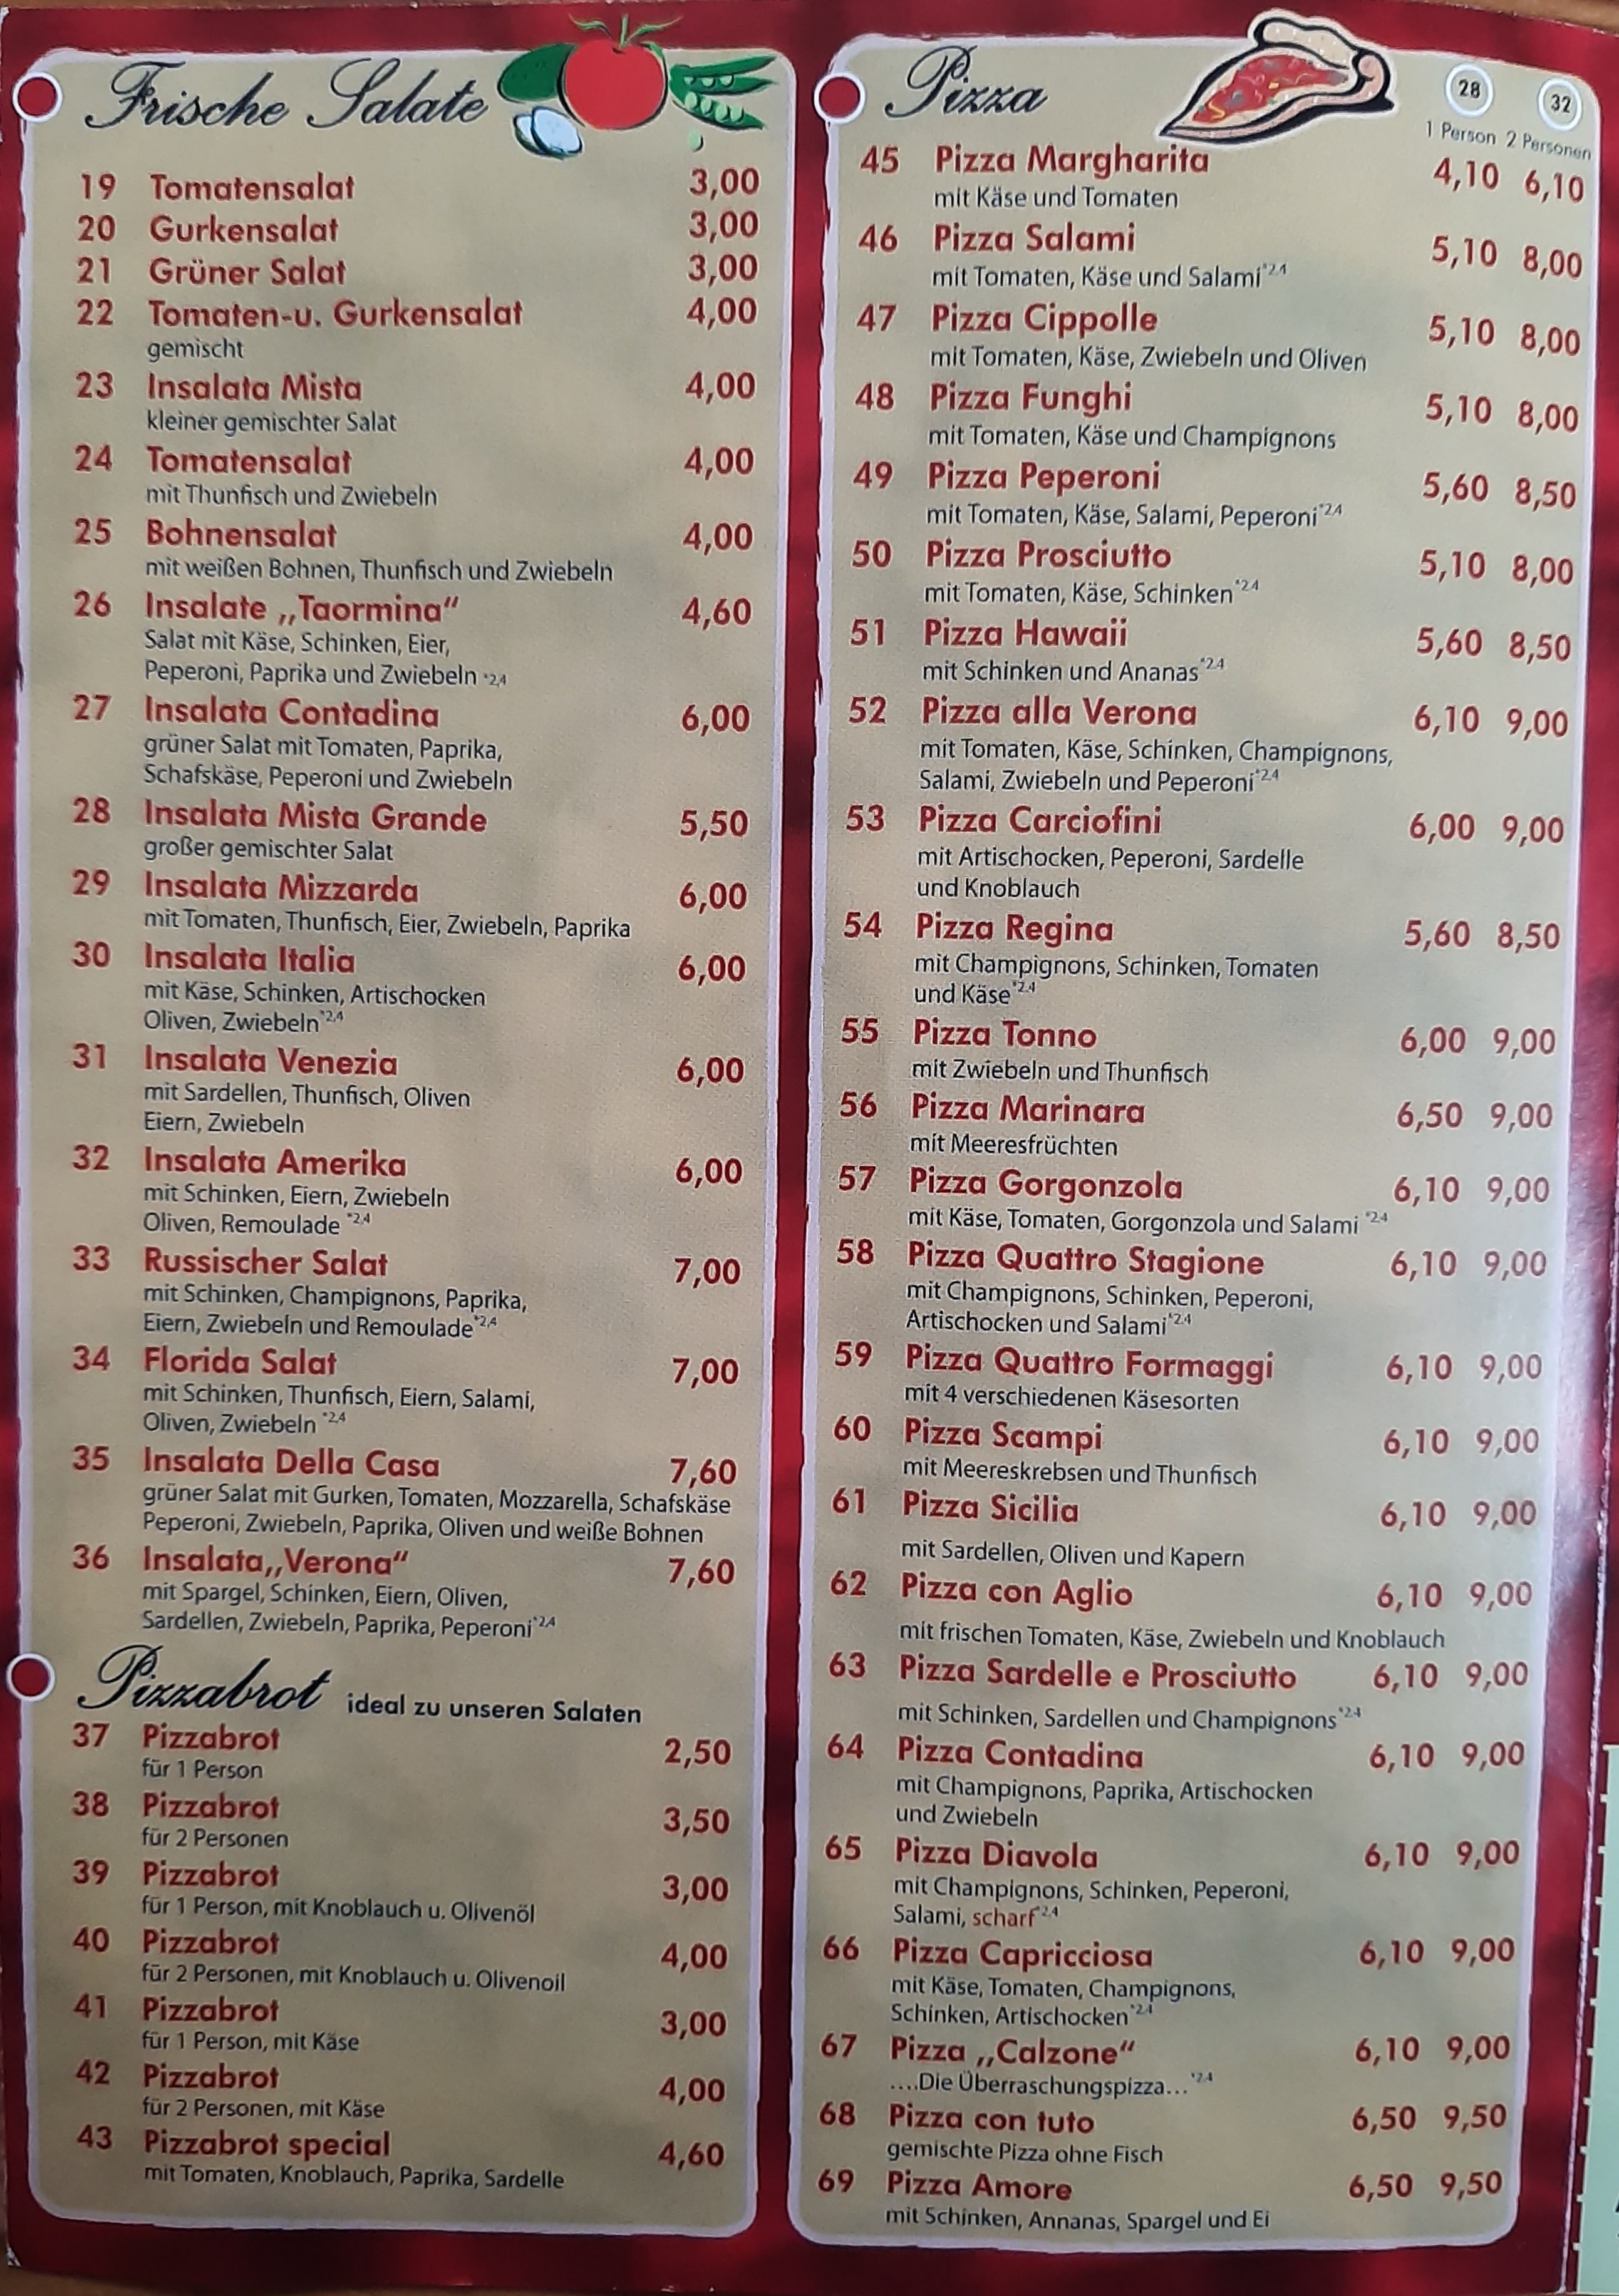 Frische Salate
19 Tomatensalat 3,00
20 Gurkensalat 3,00
21 Grüner Salat 3,00
22 Tomaten-u. Gurkensalat 4,00
gemischt
23 Insalata Mista 4,00
kleiner gemischter Salat
24 Tomatensalat 4,00
mit Thunfisch und Zwiebeln
25 Bohnensalat 4,00
mit weißen Bohnen, Thunfisch und Zwiebeln
26 Insalate „Taormina“ 4,60
Salat mit Käse, Schinken, Eier,
Peperoni, Paprika und Zwiebeln *2,4
27 Insalata Contadina 6,00
grüner Salat mit Tomaten, Paprika,
Schafskäse, Peperoni und Zwiebeln
28 Insalata Mista Grande 5,50
großer gemischter Salat
29 Insalata Mizzarda 6,00
mit Tomaten, Thunfisch, Eier, Zwiebeln, Paprika
30 Insalata Italia 6,00
mit Käse, Schinken, Artischocken
Oliven, Zwiebeln*2,4
31 Insalata Venezia 6,00
mit Sardellen, Thunfisch, Oliven
Eiern, Zwiebeln
32 Insalata Amerika 6,00
mit Schinken, Eiern, Zwiebeln
Oliven, Remoulade *2,4
33 Russischer Salat 7,00
mit Schinken, Champignons, Paprika,
Eiern, Zwiebeln und Remoulade*2,4
34 Florida Salat 7,00
mit Schinken, Thunfisch, Eiern, Salami,
Oliven, Zwiebeln *2,4
35 Insalata Della Casa 7,60
grüner Salat mit Gurken, Tomaten, Mozzarella, Schafskäse
Peperoni, Zwiebeln, Paprika, Oliven und weiße Bohnen
36 Insalata„Verona“ 7,60
mit Spargel, Schinken, Eiern, Oliven,
Sardellen, Zwiebeln, Paprika, Peperoni*2,4
Pizzabrot ideal zu unseren Salaten
37 Pizzabrot 2,50
für 1 Person
38 Pizzabrot 3,50
für 2 Personen
39 Pizzabrot 3,00
für 1 Person, mit Knoblauch u. Olivenöl
40 Pizzabrot 4,00
für 2 Personen, mit Knoblauch u. Olivenoil
41 Pizzabrot 3,00
für 1 Person, mit Käse
42 Pizzabrot 4,00
für 2 Personen, mit Käse
43 Pizzabrot special 4,60
mit Tomaten, Knoblauch, Paprika, Sardelle
Pizza 28 32
1 Person 2 Personen
45 Pizza Margharita 4,10 6,10
mit Käse und Tomaten
46 Pizza Salami 5,10 8,00
mit Tomaten, Käse und Salami*2,4
47 Pizza Cippolle 5,10 8,00
mit Tomaten, Käse, Zwiebeln und Oliven
48 Pizza Funghi 5,10 8,00
mit Tomaten, Käse und Champignons
49 Pizza Peperoni 5,60 8,50
mit Tomaten, Käse, Salami, Peperoni*2,4
50 Pizza Prosciutto 5,10 8,00
mit Tomaten, Käse, Schinken*2,4
51 Pizza Hawaii 5,60 8,50
mit Schinken und Ananas*2,4
52 Pizza alla Verona 6,10 9,00
mit Tomaten, Käse, Schinken, Champignons,
Salami, Zwiebeln und Peperoni*2,4
53 Pizza Carciofini 6,00 9,00
mit Artischocken, Peperoni, Sardelle
und Knoblauch
54 Pizza Regina 5,60 8,50
mit Champignons, Schinken, Tomaten
und Käse*2,4
55 Pizza Tonno 6,00 9,00
mit Zwiebeln und Thunfisch
56 Pizza Marinara 6,50 9,00
mit Meeresfrüchten
57 Pizza Gorgonzola 6,10 9,00
mit Käse, Tomaten, Gorgonzola und Salami *2,4
58 Pizza Quattro Stagione 6,10 9,00
mit Champignons, Schinken, Peperoni,
Artischocken und Salami*2,4
59 Pizza Quattro Formaggi 6,10 9,00
mit 4 verschiedenen Käsesorten
60 Pizza Scampi 6,10 9,00
mit Meereskrebsen und Thunfisch
61 Pizza Sicilia 6,10 9,00
mit Sardellen, Oliven und Kapern
62 Pizza con Aglio 6,10 9,00
mit frischen Tomaten, Käse, Zwiebeln und Knoblauch
63 Pizza Sardelle e Prosciutto 6,10 9,00
mit Schinken, Sardellen und Champignons*2,4
64 Pizza Contadina 6,10 9,00
mit Champignons, Paprika, Artischocken
und Zwiebeln
65 Pizza Diavola 6,10 9,00
mit Champignons, Schinken, Peperoni,
Salami, scharf*2,4
66 Pizza Capricciosa 6,10 9,00
mit Käse, Tomaten, Champignons,
Schinken, Artischocken*2,4
67 Pizza „Calzone“ 6,10 9,00
....Die Überraschungspizza... *2,4
68 Pizza con tuto 6,50 9,50
gemischte Pizza ohne Fisch
69 Pizza Amore 6,50 9,50
mit Schinken, Annanas, Spargel und Ei